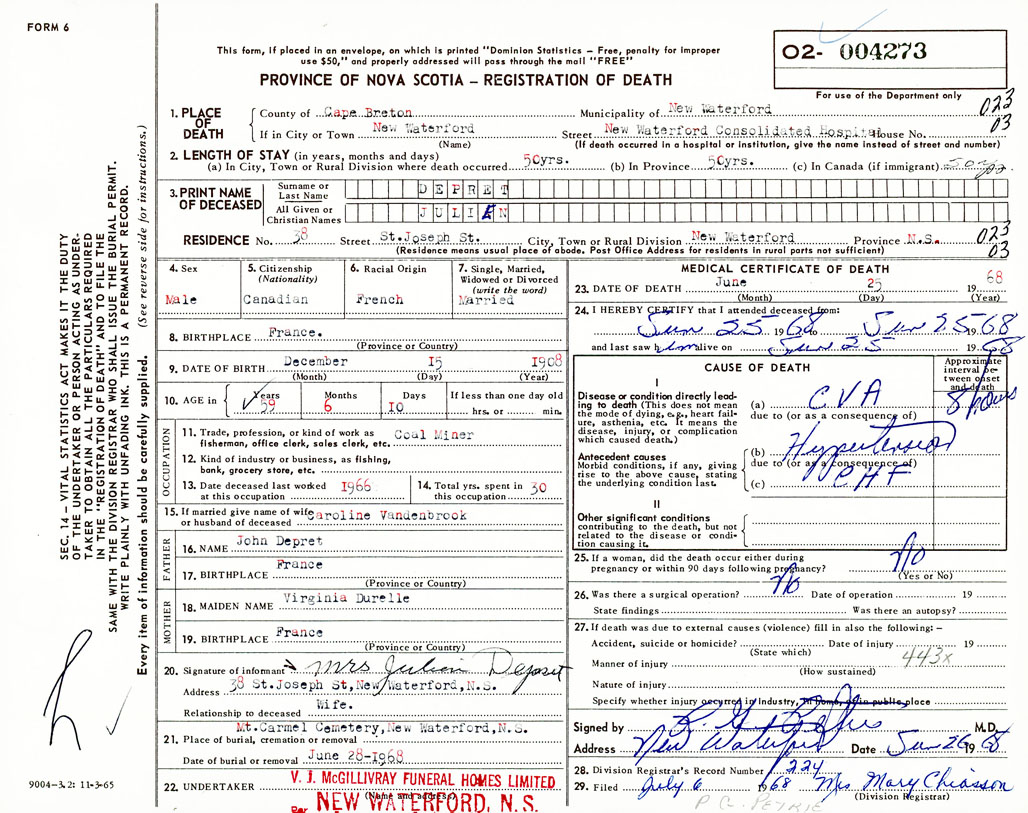 FORM 6
This form, if placed in an envelope, on which is printed "Dominion Statistics – Free, penalty for improper
use $50," and properly addressed will pass through the mail "FREE"
PROVINCE OF NOVA SCOTIA – REGISTRATION OF DEATH
O2- 004273
For use of the Department only
SEC. 14 – VITAL STATISTICS ACT MAKES IT THE DUTY
OF THE UNDERTAKER OR PERSON ACTING AS UNDER-
TAKER TO OBTAIN ALL THE PARTICULARS REQUIRED
IN THE "REGISTRATION OF DEATH" AND TO FILE THE
SAME WITH THE DIVISION REGISTRAR WHO SHALL ISSUE THE BURIAL PERMIT.
WRITE PLAINLY WITH UNFADING INK. THIS IS A PERMANENT RECORD.
Every item of information should be carefully supplied. (See reverse side for instructions.)
1. PLACE OF DEATH
County of Cape Breton Municipality of New Waterford 023
If in City or Town New Waterford Street New Waterford Consolidated Hospital House No. 03
(Name) (If death occurred in a hospital or institution, give the name instead of street and number)
2. LENGTH OF STAY (in years, months and days)
(a) In City, Town or Rural Division where death occurred 50yrs. (b) In Province 50yrs. (c) In Canada (if immigrant) 50 yrs
3. PRINT NAME OF DECEASED
Surname or Last Name DEPRET
All Given or Christian Names JULIEN
RESIDENCE No. 38 Street St.Joseph St. City, Town or Rural Division New Waterford Province N.S. 023
(Residence means usual place of abode. Post Office Address for residents in rural parts not sufficient) 03
4. Sex
Male
5. Citizenship (Nationality)
Canadian
6. Racial Origin
French
7. Single, Married, Widowed or Divorced (write the word)
Married
8. BIRTHPLACE France.
(Province or Country)
9. DATE OF BIRTH December 15 1908
(Month) (Day) (Year)
10. AGE in Years Months Days If less than one day old
59 6 10 hrs. or min.
OCCUPATION
11. Trade, profession, or kind of work as Coal Miner
fisherman, office clerk, sales clerk, etc.
12. Kind of industry or business, as fishing,
bank, grocery store, etc.
13. Date deceased last worked at this occupation 1966
14. Total yrs. spent in this occupation 30
15. If married give name of wife or husband of deceased Caroline Vandenbrook
FATHER
16. NAME John Depret
17. BIRTHPLACE France
(Province or Country)
MOTHER
18. MAIDEN NAME Virginia Durelle
19. BIRTHPLACE France
(Province or Country)
20. Signature of informant Mrs Julien Depret
Address 38 St.Joseph St,New Waterford,N.S.
Relationship to deceased Wife.
Mt.Carmel Cemetery,New Waterford,N.S.
21. Place of burial, cremation or removal
Date of burial or removal June 28-1968
22. UNDERTAKER V. J. McGILLIVRAY FUNERAL HOMES LIMITED
(Name and address)
Per NEW WATERFORD, N.S.
9004-3.2: 11-3-65
MEDICAL CERTIFICATE OF DEATH
23. DATE OF DEATH June 25 1968
(Month) (Day) (Year)
24. I HEREBY CERTIFY that I attended deceased from:
Jun 25 1968 to Jun 25 1968
and last saw him alive on Jun 25 1968
CAUSE OF DEATH
Approximate interval between onset and death
I
Disease or condition directly leading to death (This does not mean the mode of dying, e.g., heart failure, asthenia, etc. It means the disease, injury, or complication which caused death.)
(a) CVA 8 hours
due to (or as a consequence of)
Antecedent causes
Morbid conditions, if any, giving rise to the above cause, stating the underlying condition last.
(b) Hypertension
due to (or as a consequence of)
(c) CHF
II
Other significant conditions
contributing to the death, but not
related to the disease or condi-
tion causing it.
25. If a woman, did the death occur either during
pregnancy or within 90 days following pregnancy? No
(Yes or No)
26. Was there a surgical operation? No Date of operation 19
State findings Was there an autopsy?
27. If death was due to external causes (violence) fill in also the following: –
Accident, suicide or homicide? Date of injury 19
(State which) 443x
Manner of injury
(How sustained)
Nature of injury
Specify whether injury occurred in Industry, in home, or in public place
Signed by M.D.
Address New Waterford Date Jun 26 1968
28. Division Registrar's Record Number 224
29. Filed July 6 1968 Mrs Mary Chiasson
(Division Registrar)